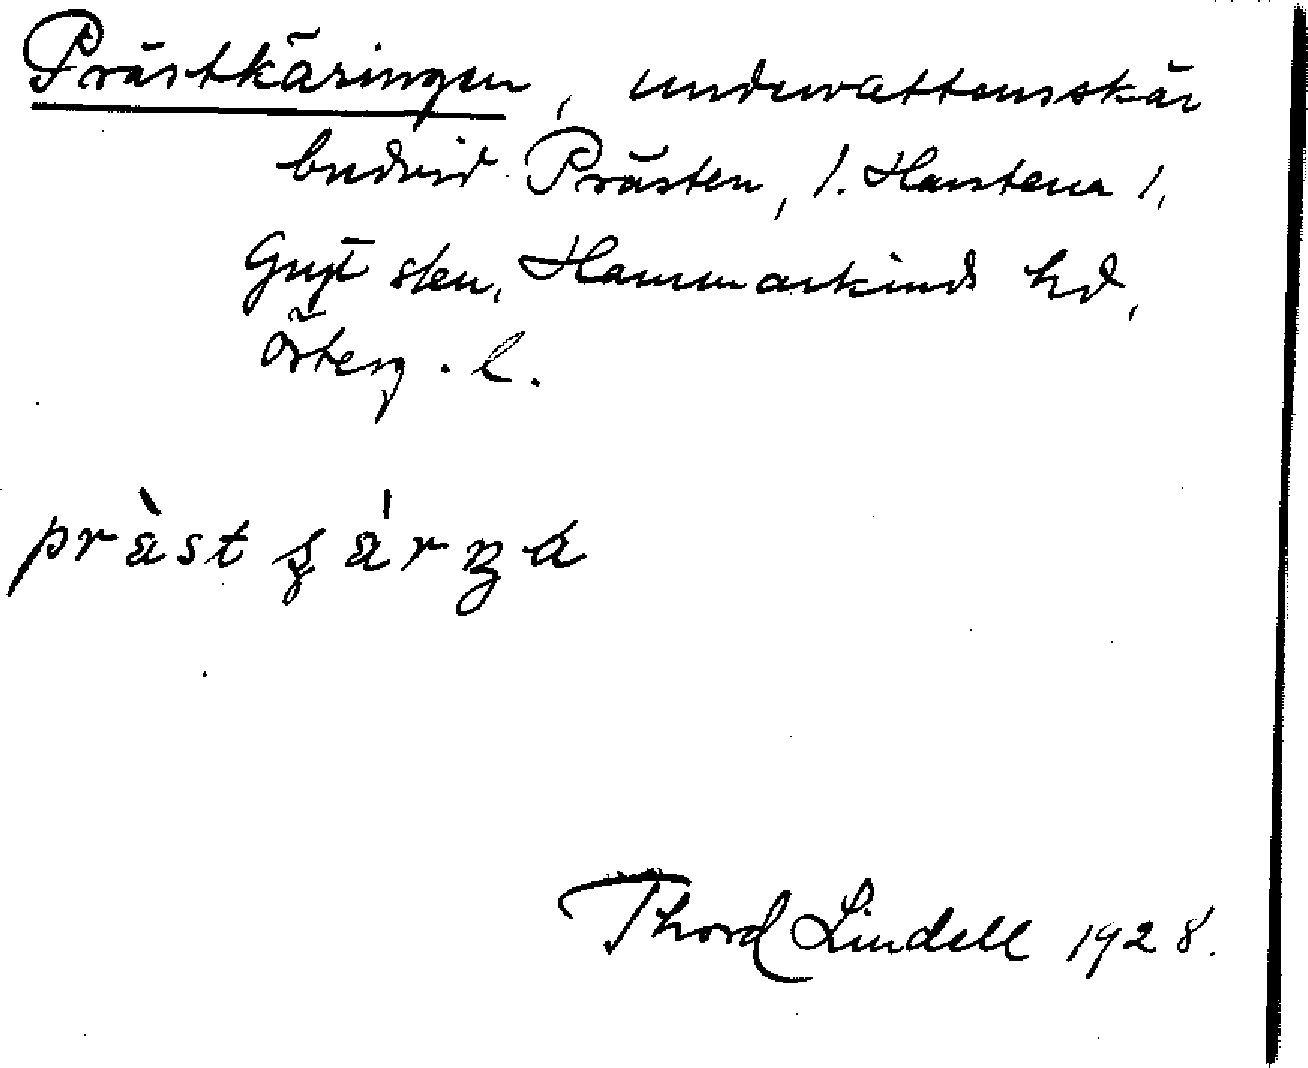 Prästkäringen, undervattensskär
bredvid Prästen, /. Harstena /,
Gryt skn, Hammarkinds hd,
Österg. l.
prä̀st ʂä́rŋa
Thord Lindell 1928.